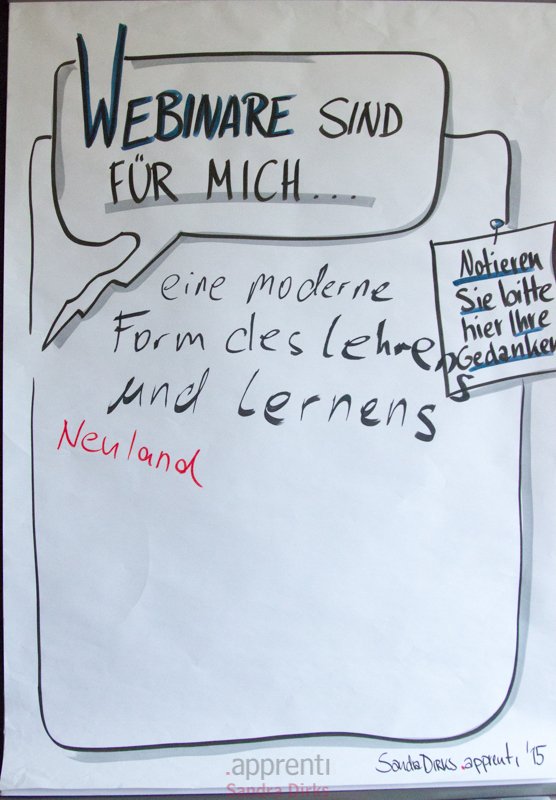 WEBINARE SIND
FÜR MICH...
Notieren
Sie bitte
hier Ihre
Gedanken
eine moderne
Form des lehrens
und lernens
Neuland
SANDRA DIRKS .apprenti '15
.apprenti
Sandra Dirks